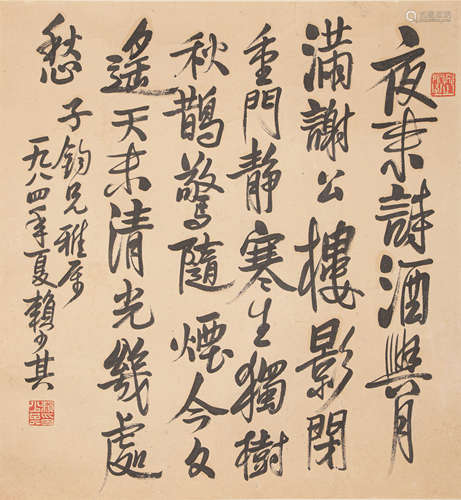 夜来詩酒興月
滿謝公樓影閉
重門靜寒生獨樹
秋鵲驚隨煙今夕
遙天末清光幾處
愁
子鈞兄雅屬
一九八四年夏賴少其